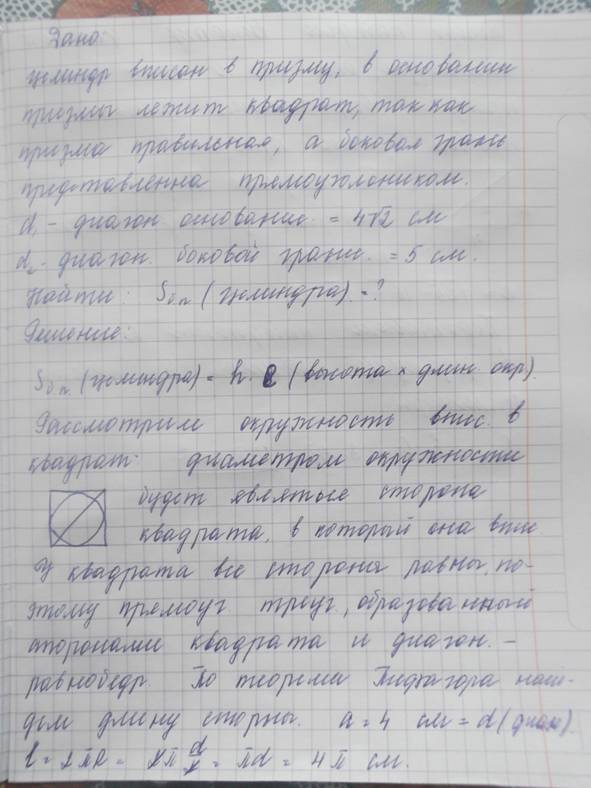 Дано:
цилиндр вписан в призму, в основании
призмы лежит квадрат, так как
призма правильная, а боковая грань
представленна прямоугольником.
d₁ - диагон основание. = 4√2 см
d₂ - диагон. боковой грани. = 5 см.
Найти: Sбп (цилиндра). - ?
Решение:
Sбп (цилиндра) = h · l (высота × длин окр).
Рассмотрим окружность впис. в
квадрат. диаметром окружности
будет являться сторона
квадрата, в который она впис
У квадрата все стороны равны, по-
этому прямоуг треуг, образованный
сторонами квадрата и диагон. -
равнобедр. По теореме Пифагора най-
дем длину сторны. a = 4 см = d (диам).
l = 2πR = 2π d/2 = πd = 4π см.